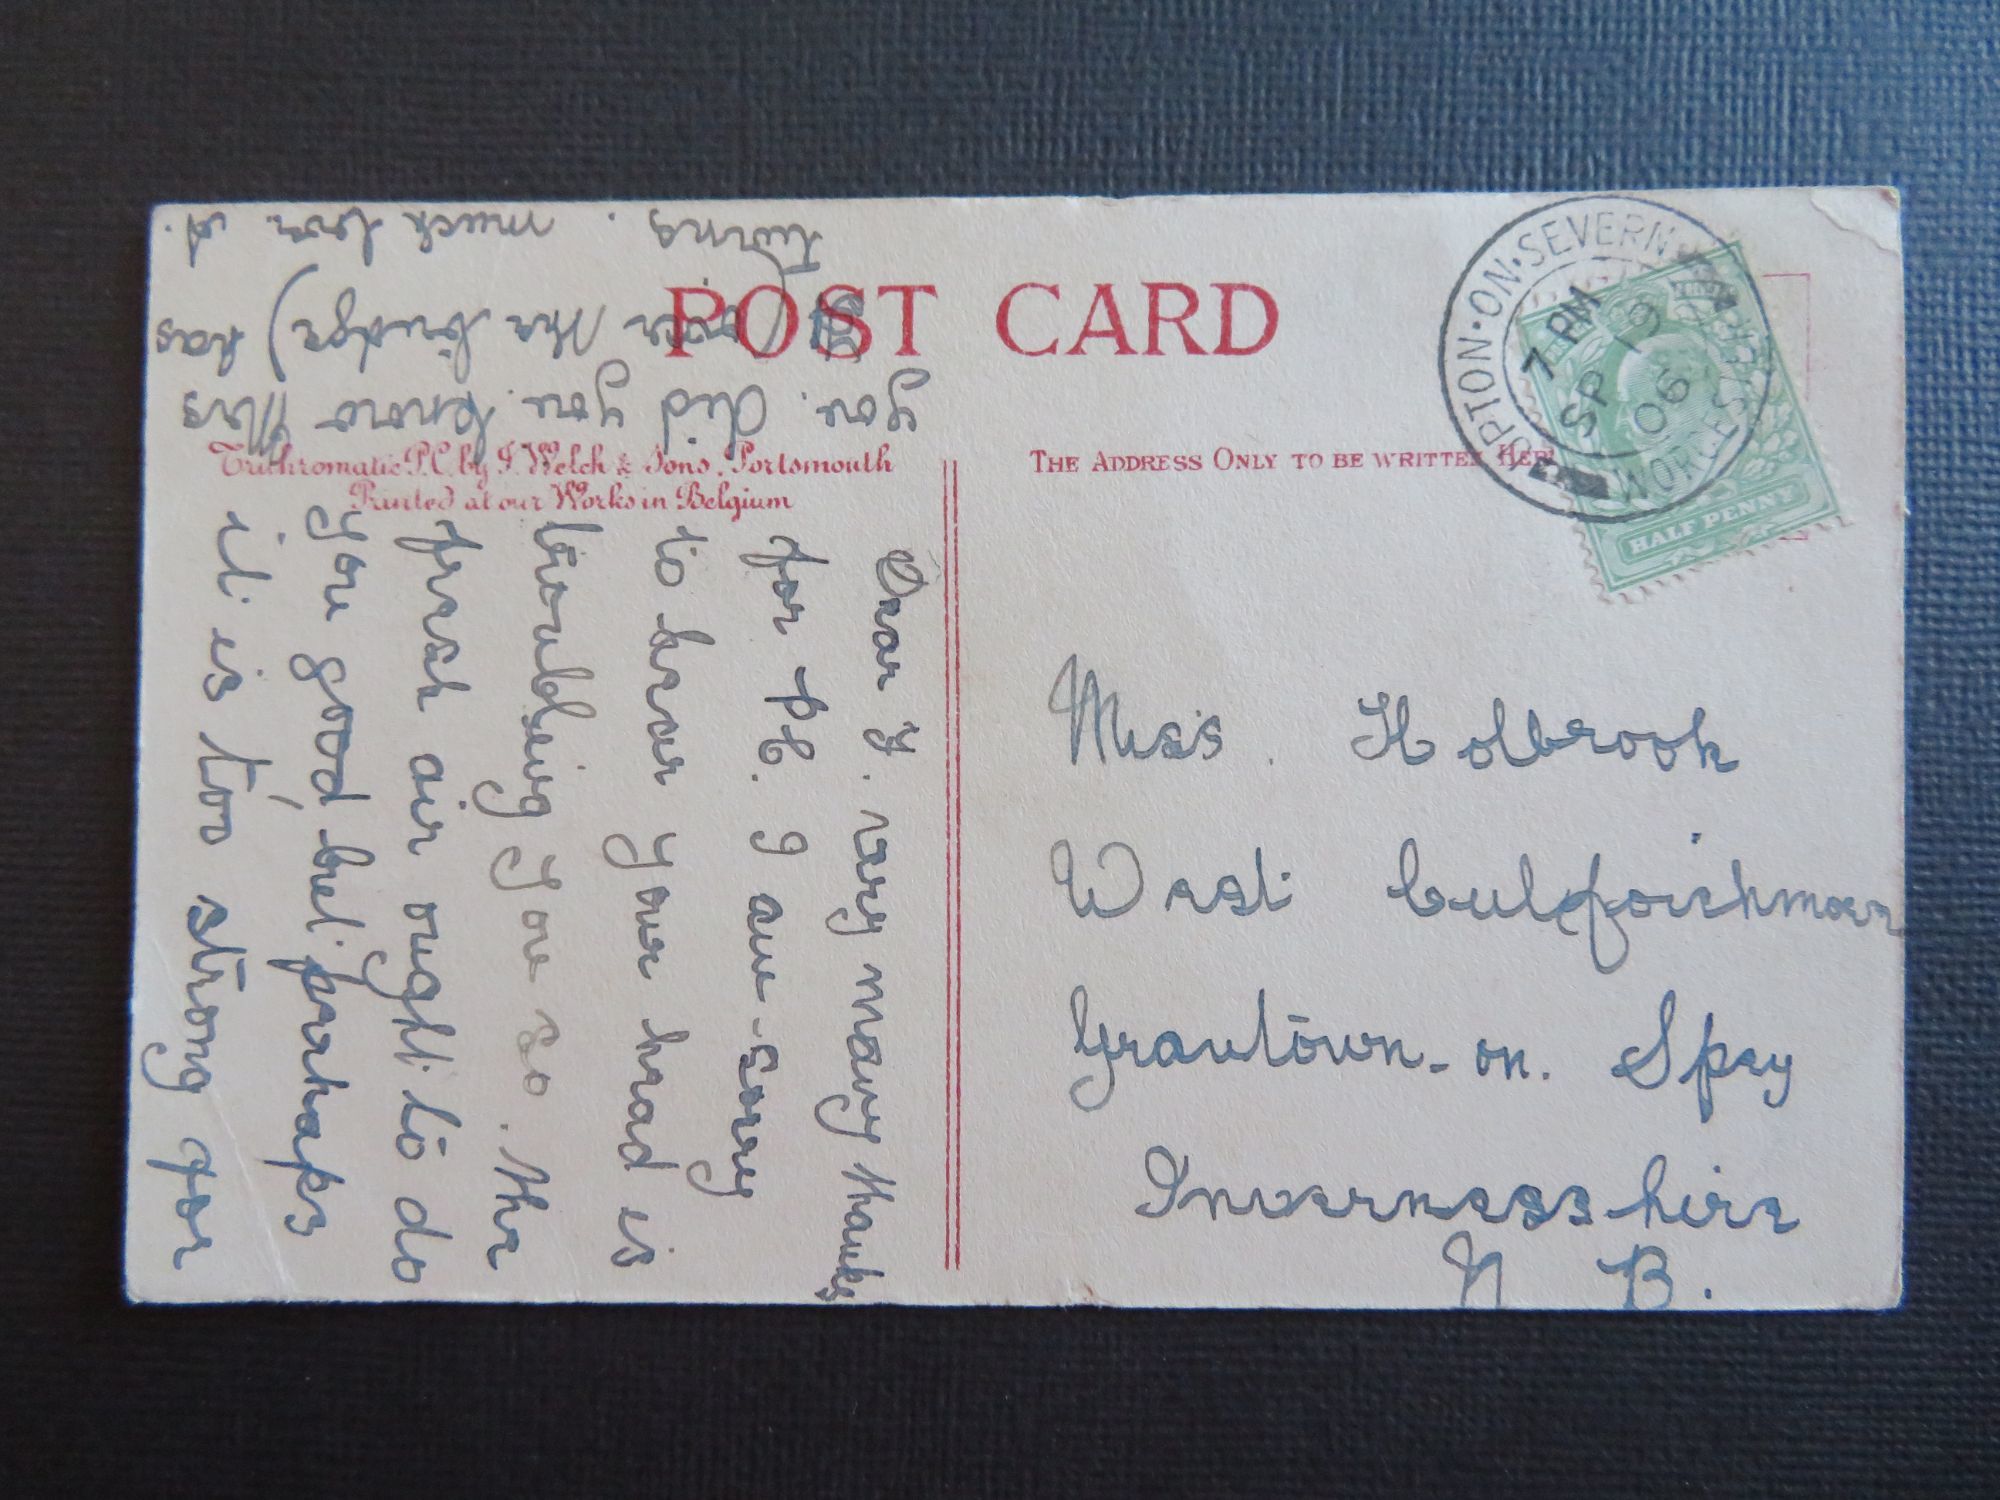 POST CARD
Trichromatic P.C. by J. Welch & Sons, Portsmouth
Printed at our Works in Belgium
THE ADDRESS ONLY TO BE WRITTEN HERE
UPTON·ON·SEVERN
7 PM
SP 19
06
WORCESTER
HALF PENNY
Miss. Holbrook
West Culfoichmore
Grantown-on. Spey
Invernessshire
N B.
Dear Y. very many thanks
for pc. I am sorry
to hear your head is
troubling you so. the
fresh air ought to do
you good, but perhaps
it is too strong for
you. did you know Mrs
over the bridge) has
twins. much love. A.